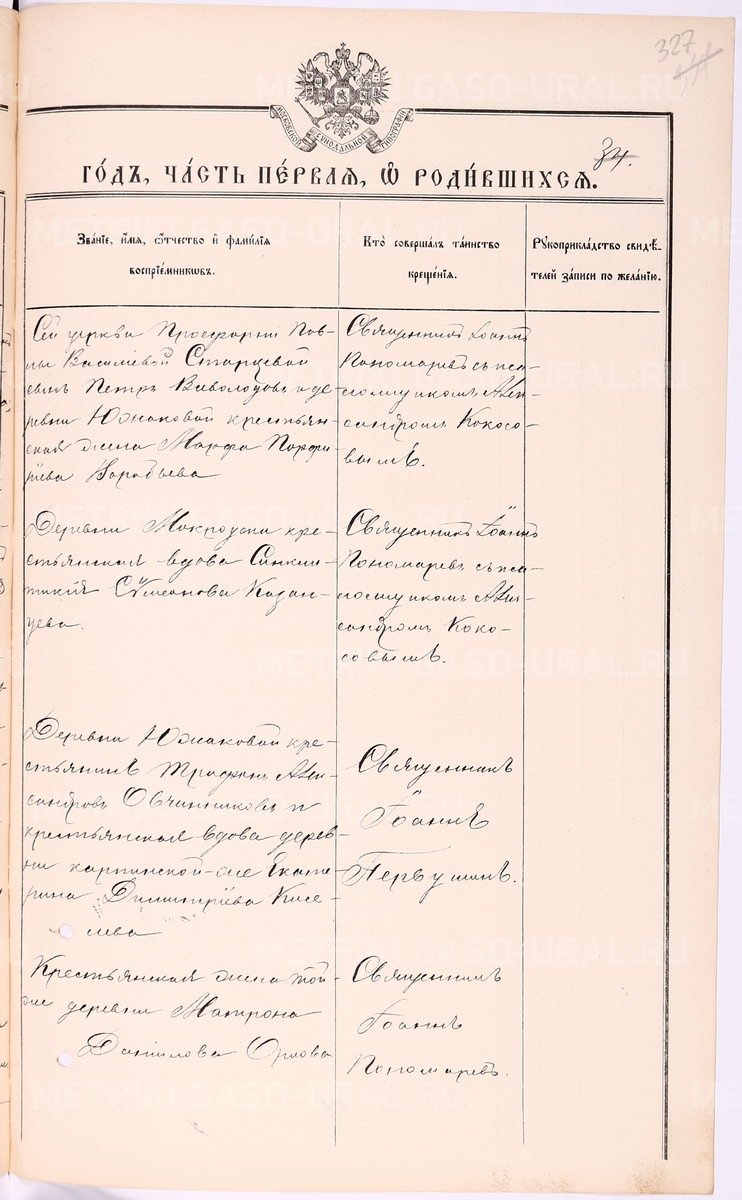 327
34.
МОСКОВСКОЙ СѴНОДАЛЬНОЙ ТИПОГРАФІИ
ГО́ДЪ, ЧА́СТЬ ПЕ́РВАЯ, Ѡ РОДИ́ВШИХСЯ.
Зва́нїе, и҆́мѧ, ѻ҆́тчество и҆ фами́лїѧ
воспрїе́мникѡвъ.
Кто̀ соверша́лъ та́инство
креще́нїѧ.
Рꙋкоприкла́дство свидѣ́-
телей за́писи по жела́нїю.
Сей церкви Просфорни Пав-
лы Васильевой Старцевой
сынъ Петръ Виволодовъ и де-
ревни Южаковой крестьян-
ская жена Марфа Порфи-
рьева Воробьева
Священникъ Іоаннъ
Пономаревъ съ пса-
ломщикомъ Алек-
сандромъ Кокосо-
вымъ.
Деревни Мокроуски кре-
стьянская вдова Синкли-
тикія Сѵмеонова Казан-
цева.
Священникъ Іоаннъ
Пономаревъ съ пса-
ломщикомъ Алек-
сандромъ Коко-
совымъ.
Деревни Южаковой кре-
стьянинъ Трифонъ Алек-
сандровъ Овчинниковъ и
крестьянская вдова дерев-
ни Карпинской-же Екате-
рина Димитріева Кисе-
лева
Священникъ
Іоаннъ
Первушинъ.
Крестьянская жена той-
же деревни Матрона
Данилова Орлова
Священникъ
Іоаннъ
Пономаревъ.
METRIKI.GASO-URAL.RU